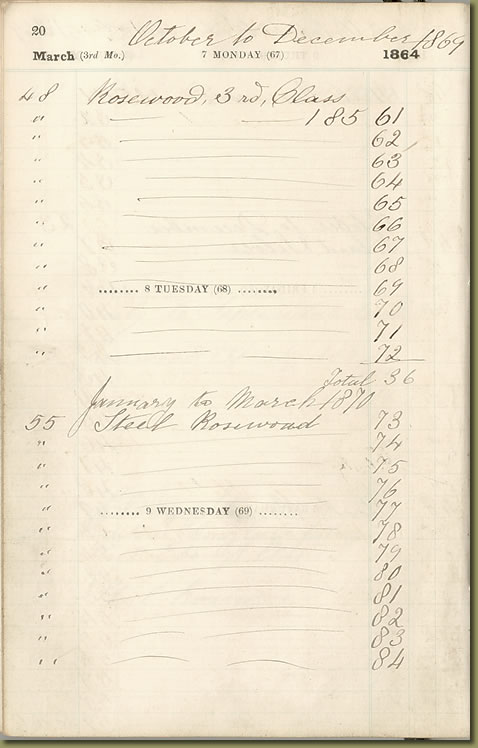 20
October to December 1869
March (3rd Mo.) 7 MONDAY (67) 1864
48 Rosewood, 3rd, Class
" 185 61
" 62
" 63
" 64
" 65
" 66
" 67
" 68
" 69
........ 8 TUESDAY (68) ........
" 70
" 71
" 72
Total 36
January to March 1870
55 Steel Rosewood 73
" 74
" 75
" 76
........ 9 WEDNESDAY (69) ........
" 77
" 78
" 79
" 80
" 81
" 82
" 83
" 84